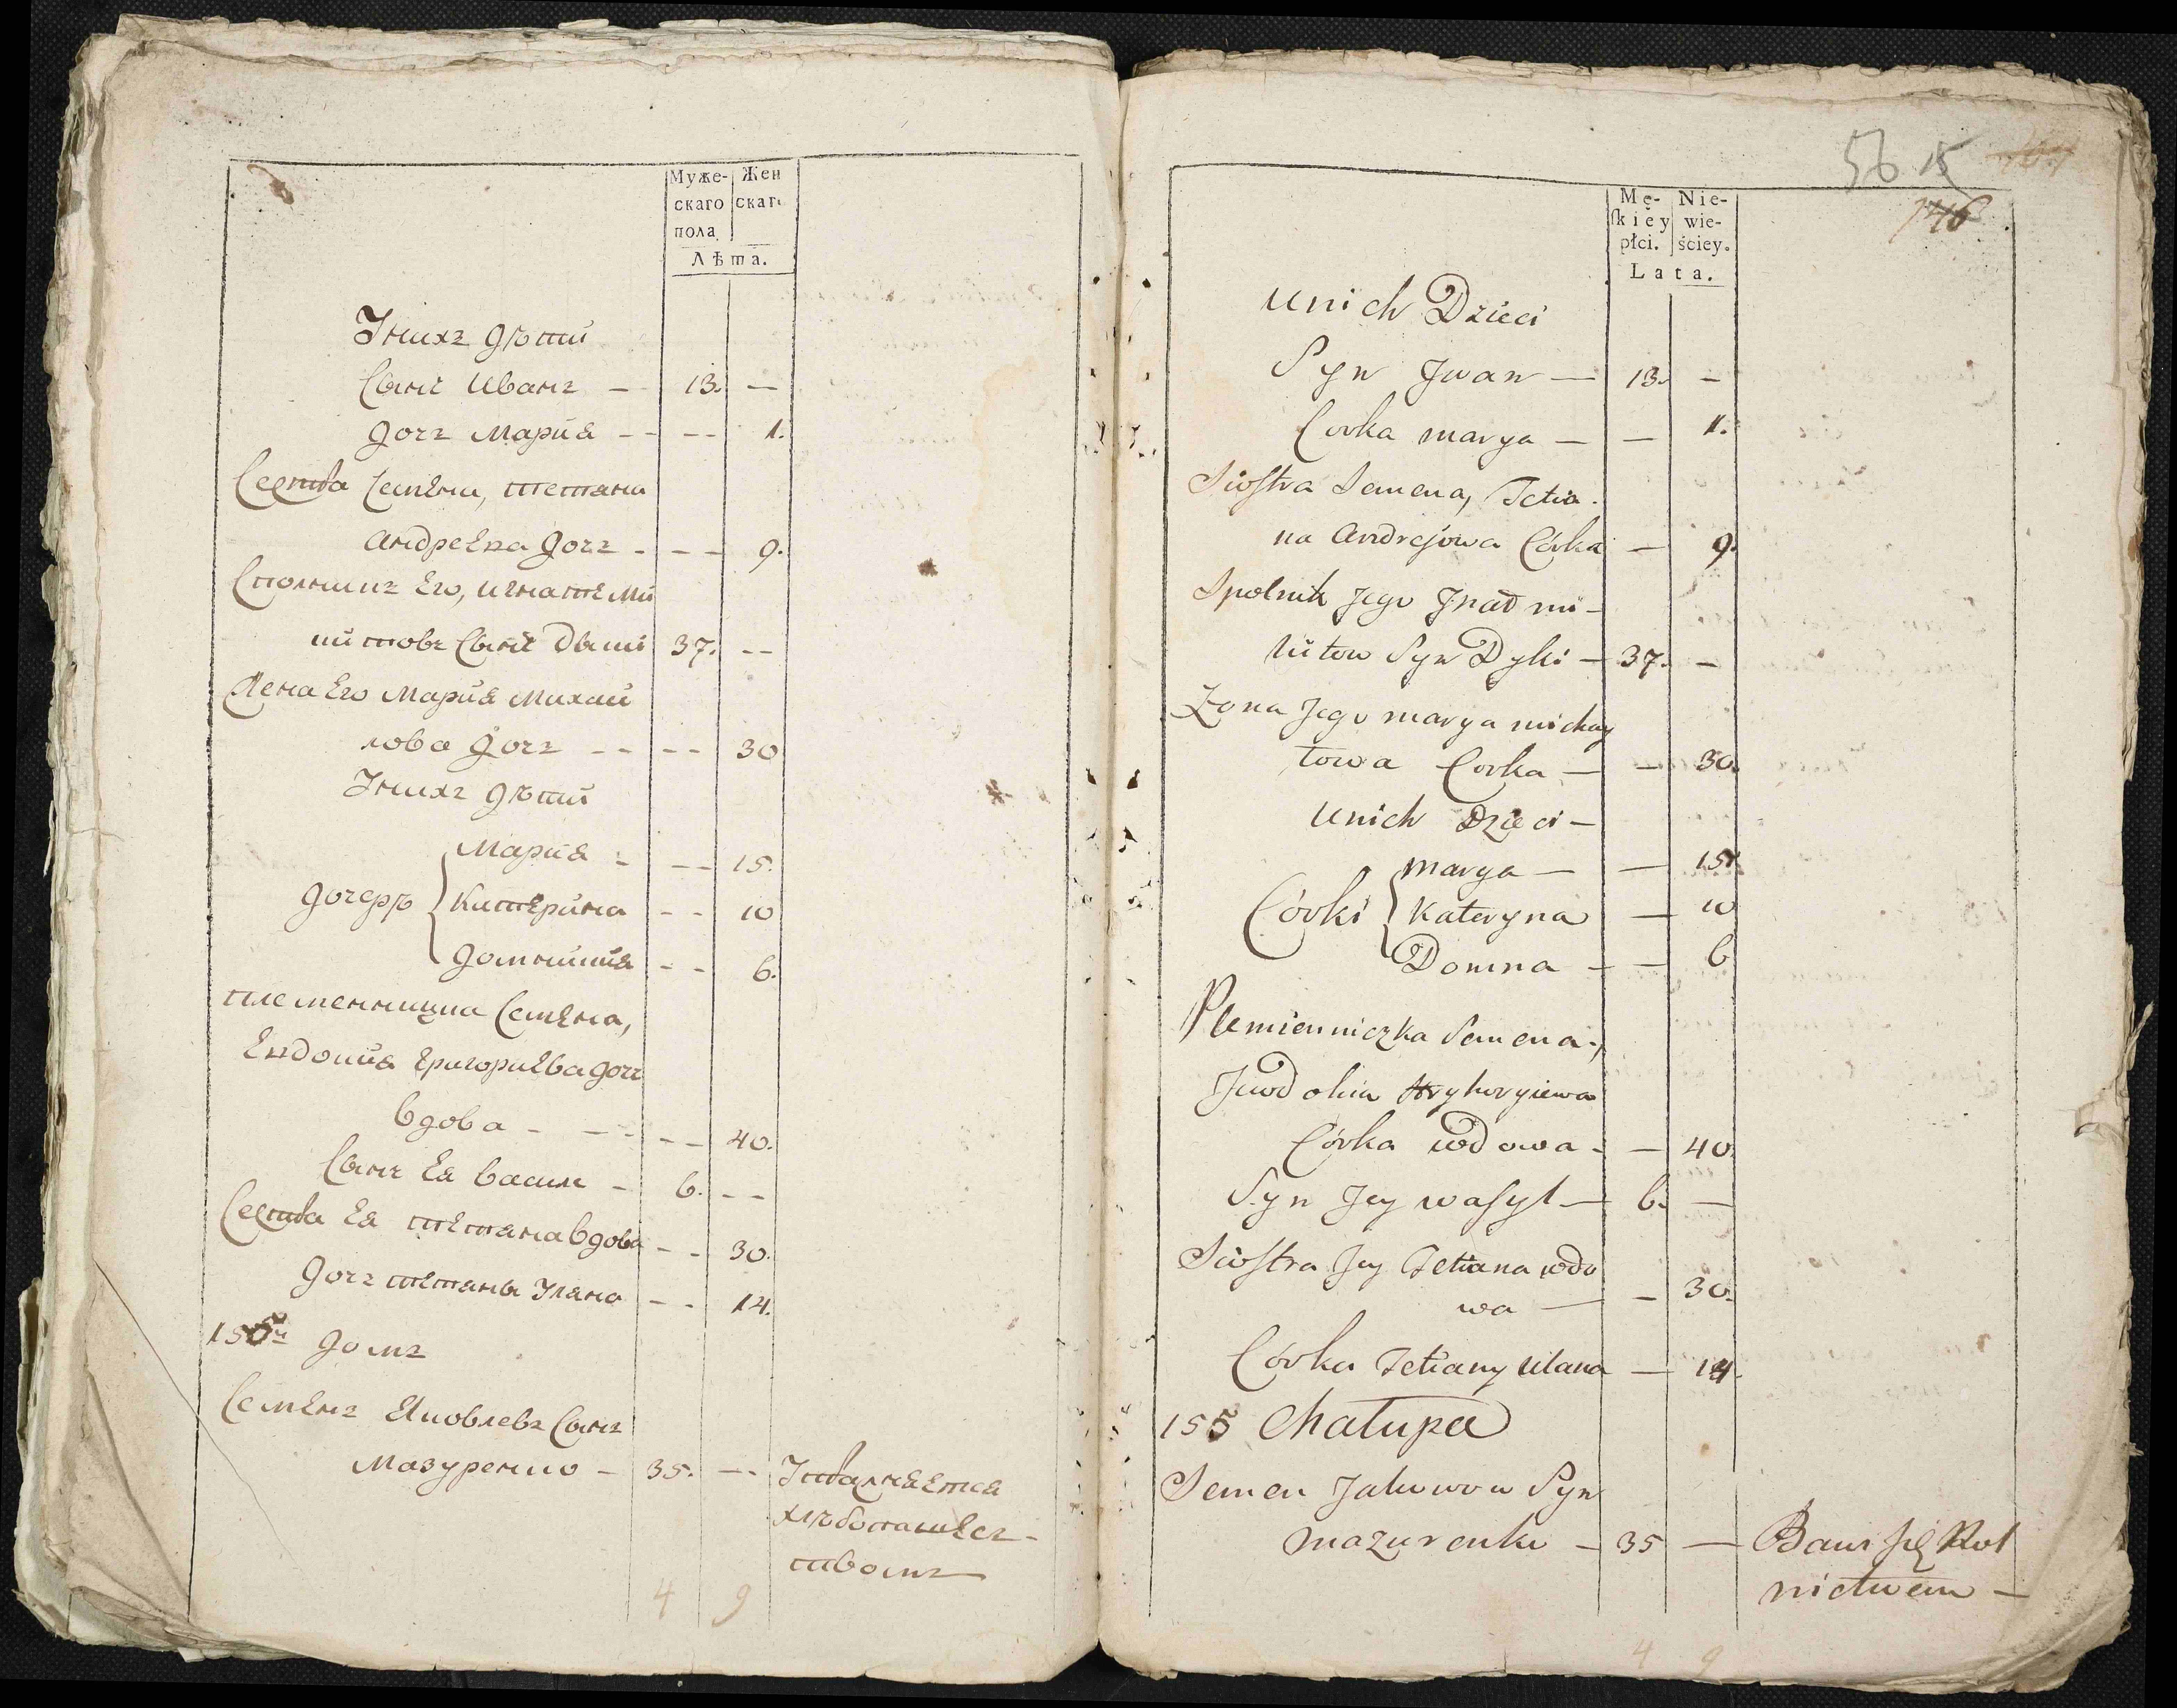 Муже- Жен
скаго скаго
пола
Лѣта.
Унихъ дѣти
Сынъ Иванъ — 13. —
дочъ Мария — — 1.
Сестра Семена, тетяна
андреева дочъ — — 9.
Сполникъ Его, игнатъ Ми
китовъ Сынъ Дыкий 37. —
Жена Его Мария Михай
лова дочъ — — 30
Унихъ дѣти
Мария — — 15.
дочерѣ { Катерина — — 10
домникия — — 6.
племенница Семена,
Евдокия григориева дочъ
вдова — — 40.
Сынъ Ея василь — 6. —
Сестра Ея тетяна вдова — — 30.
дочъ тетяны Уляна — — 14.
155й домъ
Семенъ Яковлевъ Сынъ
Мазуренко — 35. — Упражняется
хлѣбопашес-
твомъ
4 9
56 15
146
Mę- Nie-
skiey wie-
płci. ściey.
Lata.
Unich Dzieci
Syn Jwan — 13. —
Corka marya — — 1.
Siostra Semena, Tetia-
na Andrejowa Córka — 9.
Spolnik Jego Jnat mi-
kitow Syn Dyki — 37. —
Zona Jego marya michay
łowa Corka — — 30.
Unich Dzieci —
marya — — 15.
Córki { Kateryna — 10
Domna — — 6
Plemienniczka Semena,
Jewdokia Hryhoryiewa
Córka wdowa — — 40.
Syn Jey wasyl — 6. —
Siostra Jey Tetiana wdo
wa — — 30.
Córka Tetiany Ulana — 14.
155 Chałupa
Semen Jakowow Syn
mazurenko — 35 — Bawi się Rol
nictwem —
4 9